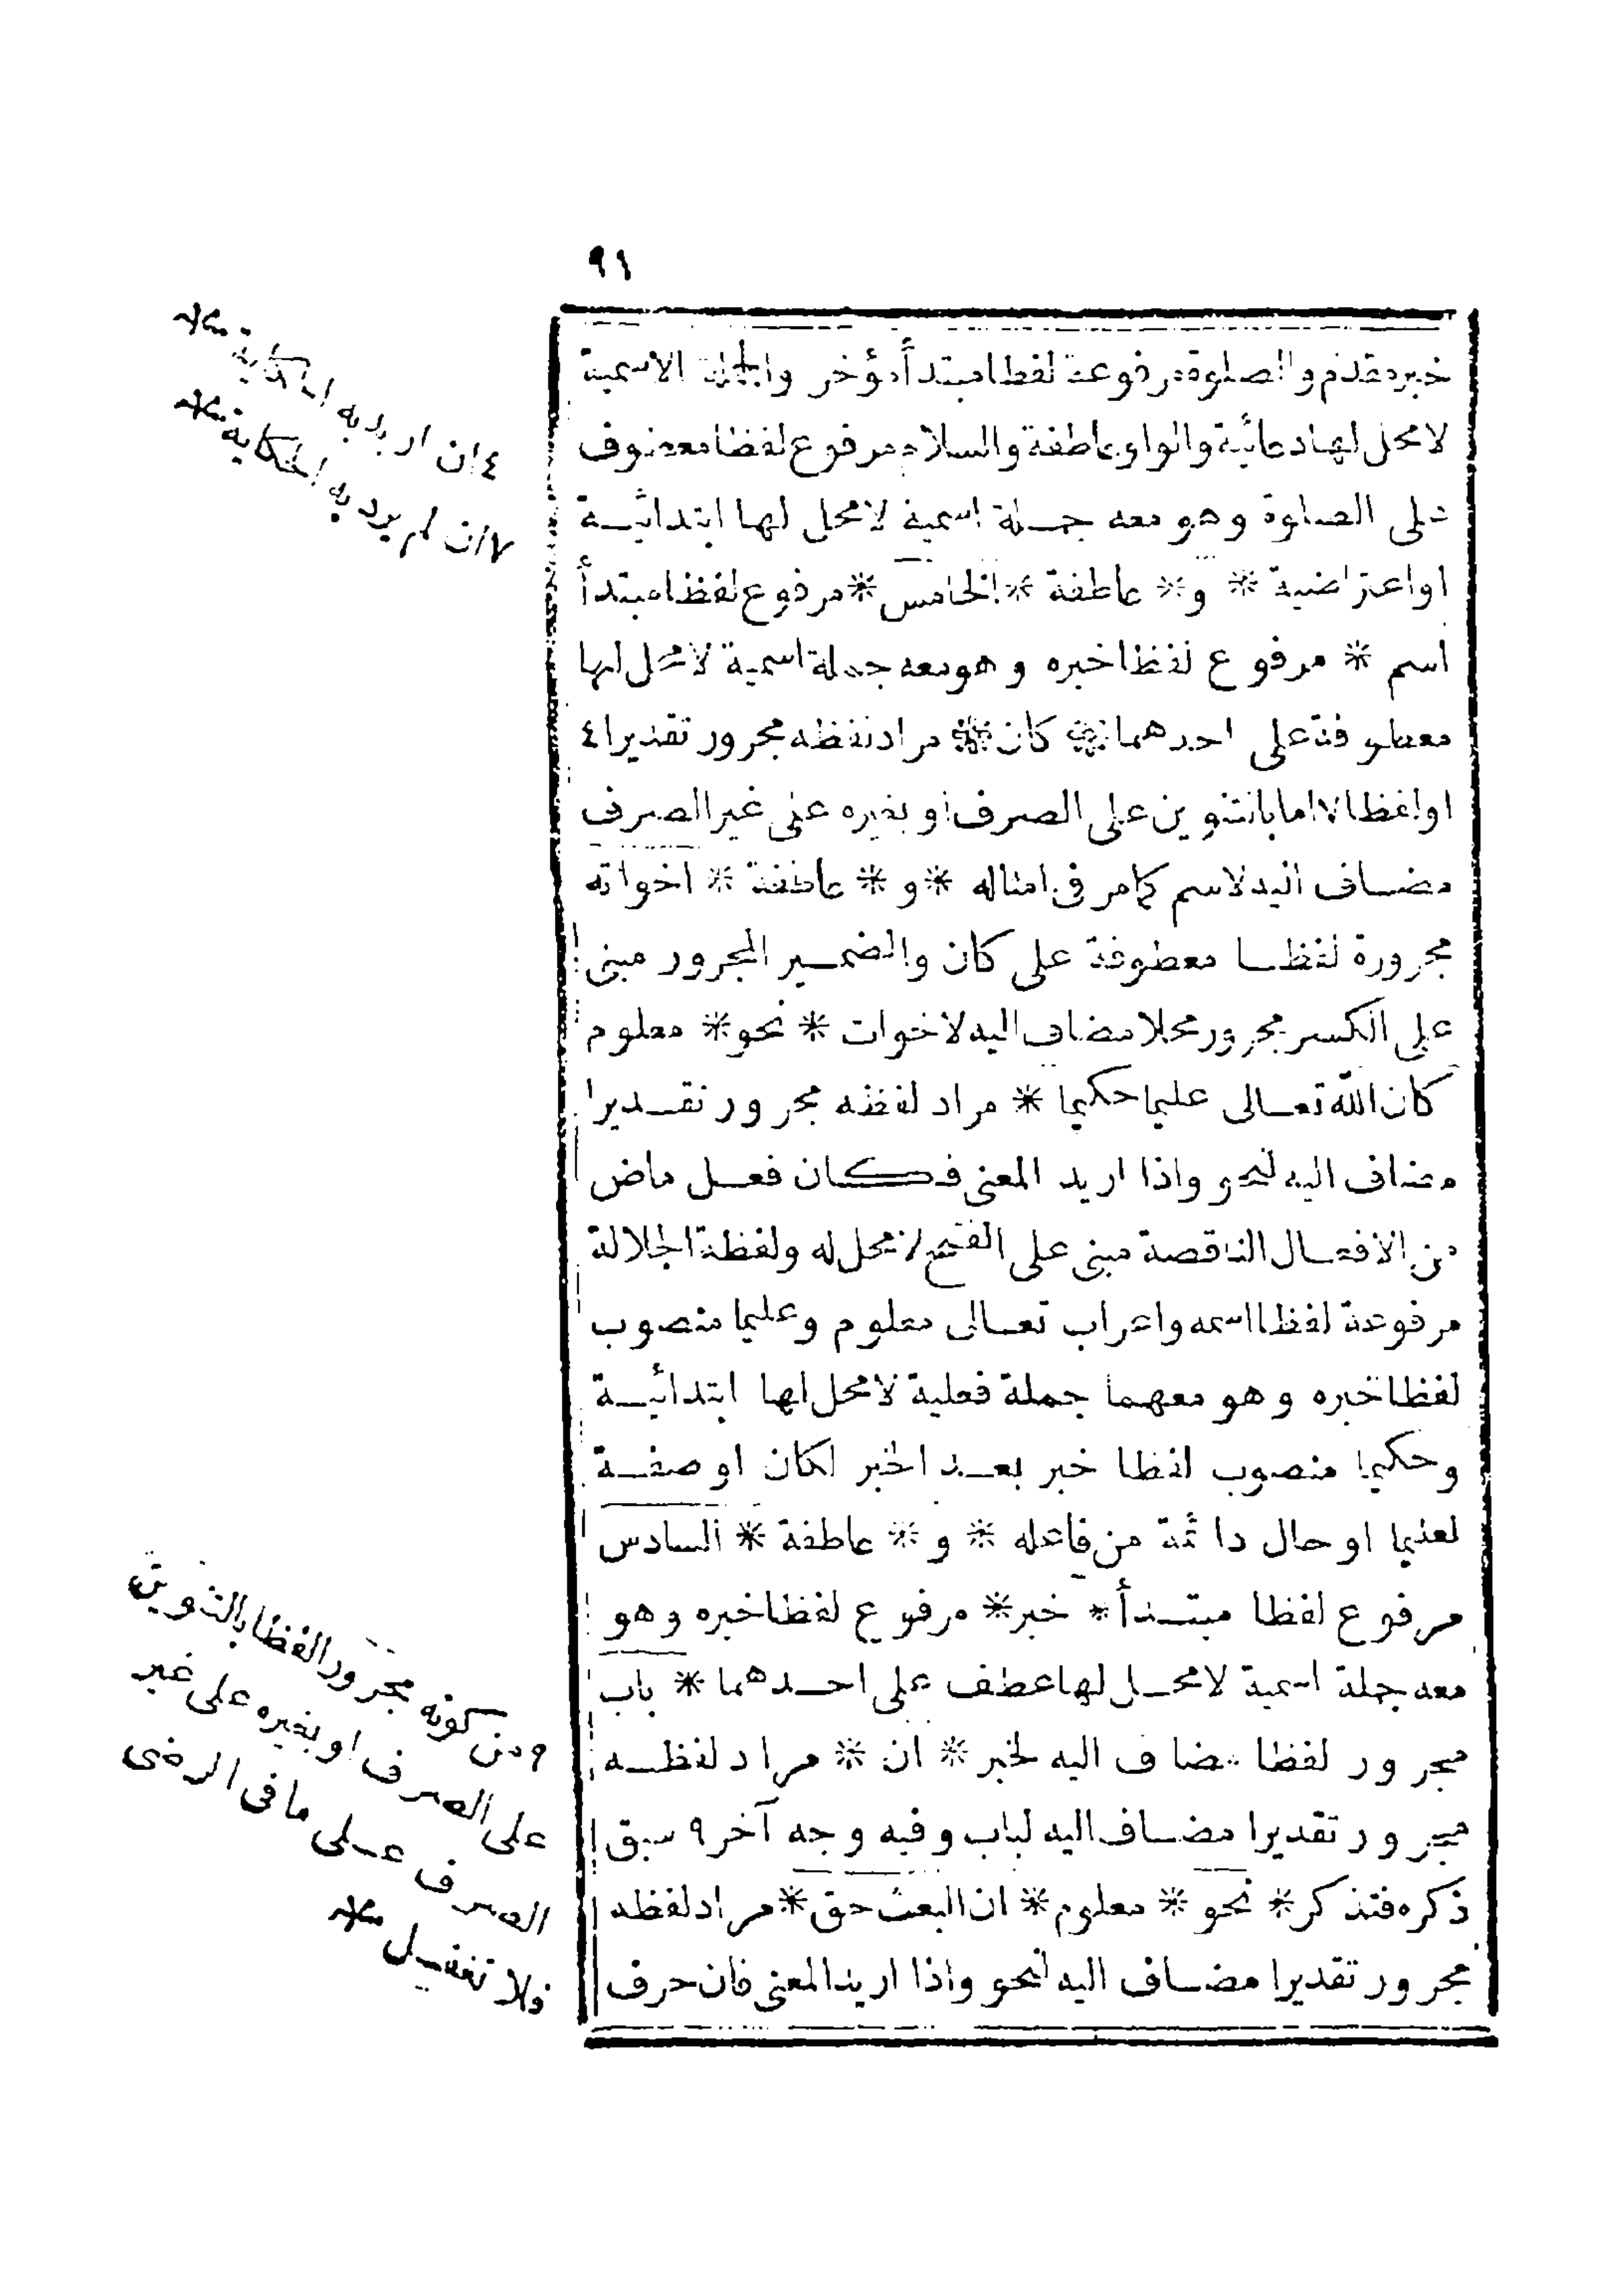 ٩١
خبر مقدم والصلوة مرفوعة لفظا مبتدأ مؤخر والجملة الاسمية
لا محل لها دعائية والواو عاطفة والسلام مرفوع لفظا معطوف
على الصلوة وهو معه جملة اسمية لا محل لها ابتدائية
او اعتراضية * و * عاطفة * الخامس * مرفوع لفظا مبتدأ
اسم * مرفوع لفظا خبره وهو معه جملة اسمية لا محل لها
معطوفة على احدهما * كان * مراد لفظه مجرور تقديرا ٤
او لفظا ٧ اما بالتنوين على الصرف او بغيره على غير الصرف
مضاف اليه لاسم كما مر فى امثاله * و * عاطفة * اخواته
مجرورة لفظا معطوفة على كان والضمير المجرور مبنى
على الكسر مجرور محلا مضاف اليه لاخوات * نحو * معلوم
كان الله تعالى عليما حكيما * مراد لفظه مجرور تقديرا
مضاف اليه لنحو واذا اريد المعنى فكان فعل ماض
من الافعال الناقصة مبنى على الفتح لا محل له ولفظة الجلالة
مرفوعة لفظا اسمه واعراب تعالى معلوم وعليما منصوب
لفظا خبره وهو معهما جملة فعلية لا محل لها ابتدائية
وحكيما منصوب لفظا خبر بعد الخبر لكان او صفة
لعليما او حال دائمة من فاعله * و * عاطفة * السادس
مرفوع لفظا مبتدأ * خبر * مرفوع لفظا خبره وهو
معه جملة اسمية لا محل لها عطف على احدهما * باب
مجرور لفظا مضاف اليه لخبر * ان * مراد لفظه
مجرور تقديرا مضاف اليه لباب وفيه وجه آخر ٩ سبق
ذكره فتذكر * نحو * معلوم * ان البعث حق * مراد لفظه
مجرور تقديرا مضاف اليه لنحو واذا اريد المعنى فان حرف
٤ ان اريد به الحكاية *
٧ ان لم يرد به الحكاية *
٩ من كونه مجرورا لفظا بالتنوين
على الصرف او بغيره على غير
الصرف على ما فى الرضى
فلا تغفل *